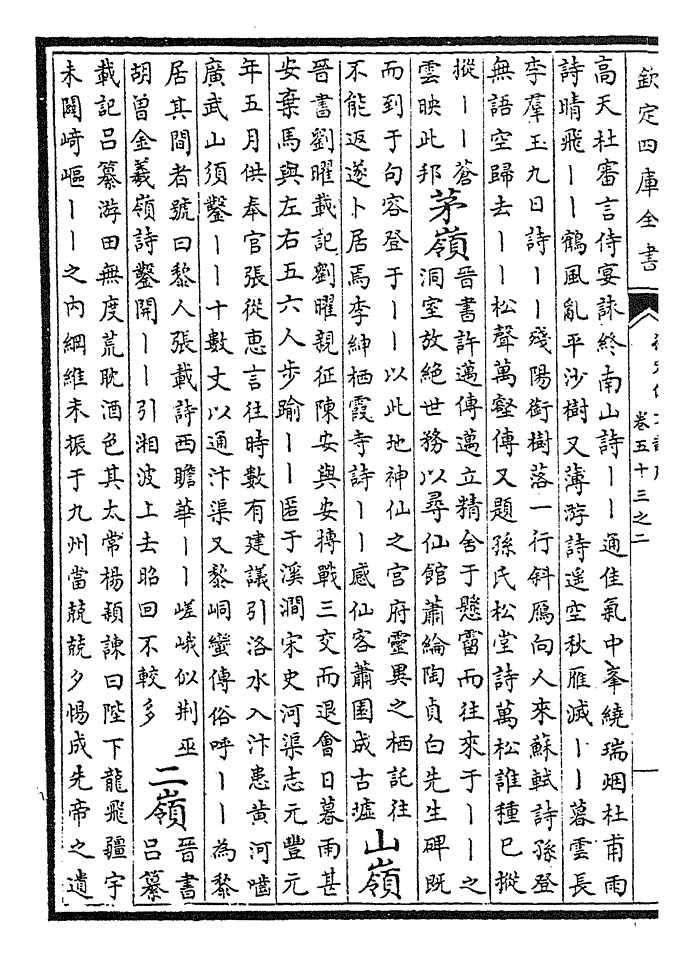 欽定四庫全書
卷五十三之二
高天杜審言侍宴詠終南山詩丨丨通佳氣中峯繞瑞烟杜甫雨
詩晴飛丨丨鶴風亂平沙樹又薄游詩遥空秋雁滅丨丨暮雲長
李羣玉九日詩丨丨殘陽銜樹落一行斜鴈向人來蘇軾詩孫登
無語空歸去丨丨松聲萬壑傳又題孫氏松堂詩萬松誰種已摐
摐丨丨蒼
雲映此邦
茅嶺
晉書許邁傳邁立精舍于懸霤而往來于丨丨之
洞室放絶世務以尋仙館蕭綸陶貞白先生碑既
而到于句容登于丨丨以此地神仙之宫府靈異之栖託往
不能返遂卜居焉李紳栖霞寺詩丨丨感仙客蕭園成古墟
山嶺
晉書劉曜載記劉曜親征陳安與安搏戰三交而退會日暮雨甚
安棄馬與左右五六人步踰丨丨匿于溪澗宋史河渠志元豐元
年五月供奉官張從恵言往時數有建議引洛水入汴患黄河嚙
廣武山須鑿丨丨十數丈以通汴渠又黎峒蠻傳俗呼丨丨為黎
居其間者號曰黎人張載詩西瞻華丨丨嵯峨似荆巫
胡曾金義嶺詩鑿開丨丨引湘波上去昭回不較多
二嶺
晉書
呂纂
載記呂纂游田無度荒耽酒色其太常楊穎諫曰陛下龍飛疆宇
未闢崎嶇丨丨之内綱維未振于九州當兢兢夕惕成先帝之遺